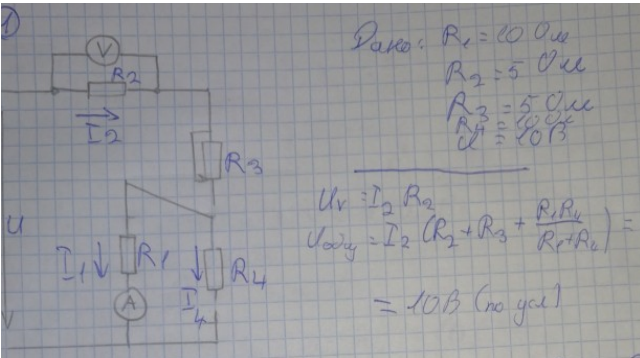 1
V
R2
I2
R3
U
I1 R1 R4
I4
A
Дано: R1 = 10 Ом
R2 = 5 Ом
R3 = 5 Ом
R4 = 10 Ом
U = 10 В
Uv = I2 R2
Uобщ = I2 (R2 + R3 + R1R4 / R1+R4) =
= 10В (по усл)